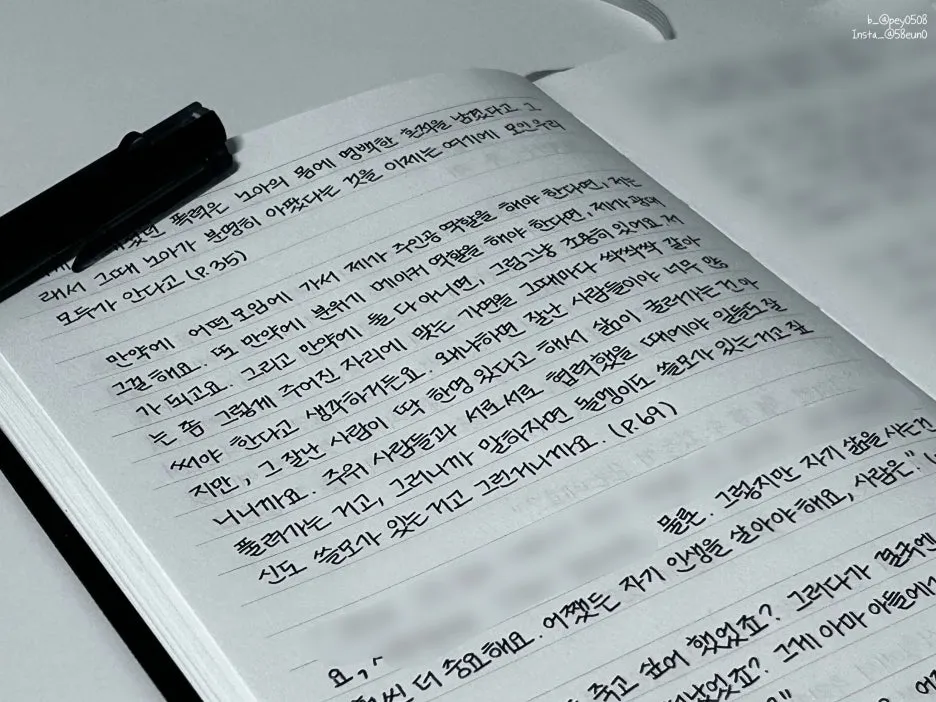 b_@pey0508
Insta_@58eun0
폭력은 노아의 몸에 명백한 흔적을 남겼다고. 그
래서 그때 노아가 분명히 아팠다는 것을 이제는 여기에 모인 우리
모두가 안다고 (p.35)
만약에 어떤 모임에 가서 제가 주인공 역할을 해야 한다면, 저는
그걸 해요. 또 만약에 분위기 메이커 역할을 해야 한다면, 제가 광대
가 되고요. 그리고 만약에 둘 다 아니면, 그럼 그냥 조용히 있어요. 저
는 좀 그렇게 주어진 자리에 맞는 가면을 그때마다 싹싹싹 갈아
써야 한다고 생각하거든요. 왜냐하면 잘난 사람들이야 너무 많
지만, 그 잘난 사람이 딱 한명 있다고 해서 삶이 굴러가는 건 아
니니까요. 주위 사람들과 서로서로 협력했을 때에야 일들도 잘
풀려가는 거고, 그러니까 말하자면 돌멩이도 쓸모가 있는 거고 잪
신도 쓸모가 있는 거고 그런거니까요. (p.69)
물론. 그렇지만 자기 삶을 사는 건
요,
씬 더 중요해요. 어쨌든 자기 인생을 살아야 해요, 사람은."
죽고 싶어 했었죠? 그러다가 결국엔
났었죠? 그게 아마 아들에게